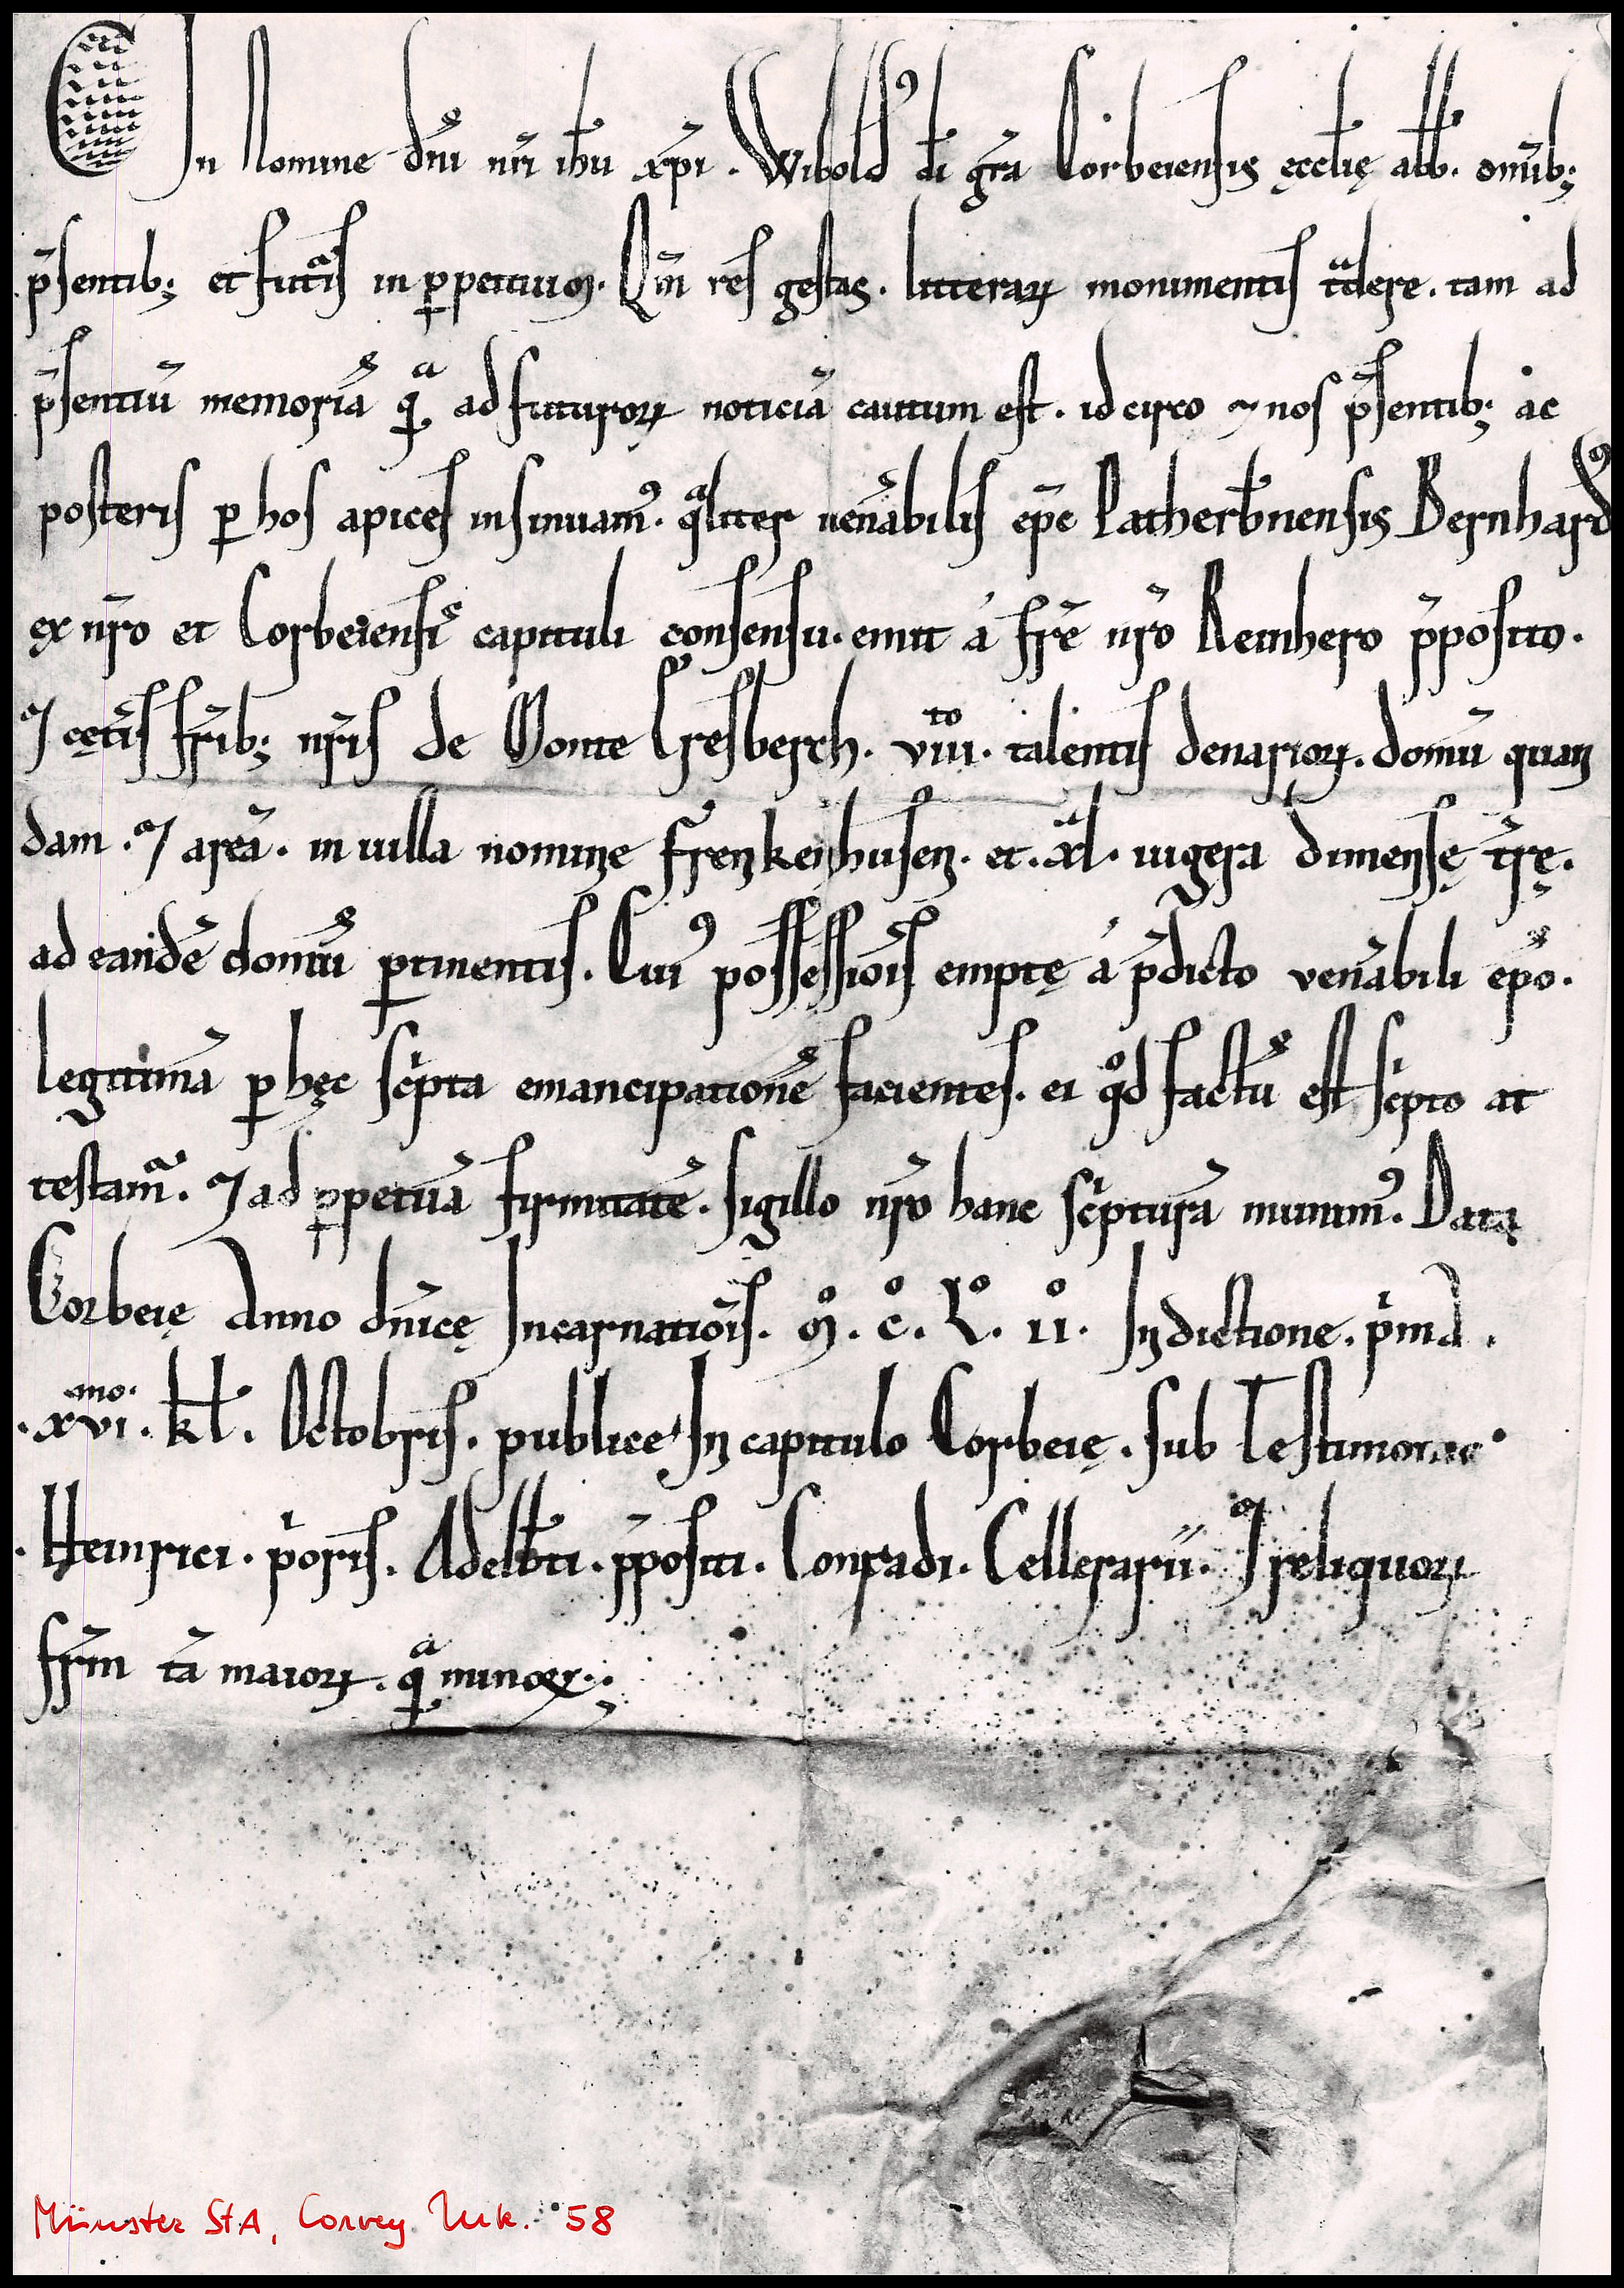 In Nomine dn̅i nr̅i ih̅u xp̅i . Wibold᷒ d̅i gr̅a Corbeiensis ęccl̅ię abb̅. omn̅ib;
p̅sentib; et futuͣrıs in ꝑpetuum. Qm̅ res gestas . litteraꝝ monumentis tͣdere . tam ad
p̅sentiū memoriā q̨ͣ ad futuroꝝ noticiā cautum est . id circo ⁊ nos p̅sentib; ac
posteris ꝑ hos apices insinuam᷒. qͣliter uen̅abilis ep̅c Patherb̅nensis Bernhard᷒
ex nr̅o et Corbeiensi̅ capituli consensu. emit á fr̅e nr̅o Reinhero p̅posito .
⁊ cęt̅is fr̅ib; nr̅is de Monte Eresberch . vıııͭͦ . talentis denarioꝝ . domū quan
dam . ⁊ areā . in uilla nomine Frenkenhusen . et . xl . iugera dimensę tr̅ę .
ad eandē domū ꝑtinentis . Cui᷒ possessiōis emptę á p̅dicto ven̅abili ep̅o .
legitimā ꝑ hęc scͥpta emancipationē facientes . ei qͦd factū est scͥpto at
testamͣ . ⁊ ad ꝑpetuā firmitatē . sigillo nr̅o hanc scͥpturā munim᷒ . Data
Corbeię Anno dn̅icę Incarnatiōis . mͦ . cͦ . Lͦ . ııͦ . Indictione . pͥma .
. xvımͦ . kl̅ . Octobris . publice In capitulo Corbeię . sub Testimonio
. Heinrici . pͥoris . Adelb̅ti . p̅positi . Conradi . Cellerarii . ⁊ reliquoꝝ
fr̅m tā maioꝝ . q̨ͣ minoꝝ .;
Münster StA, Corvey Urk. 58